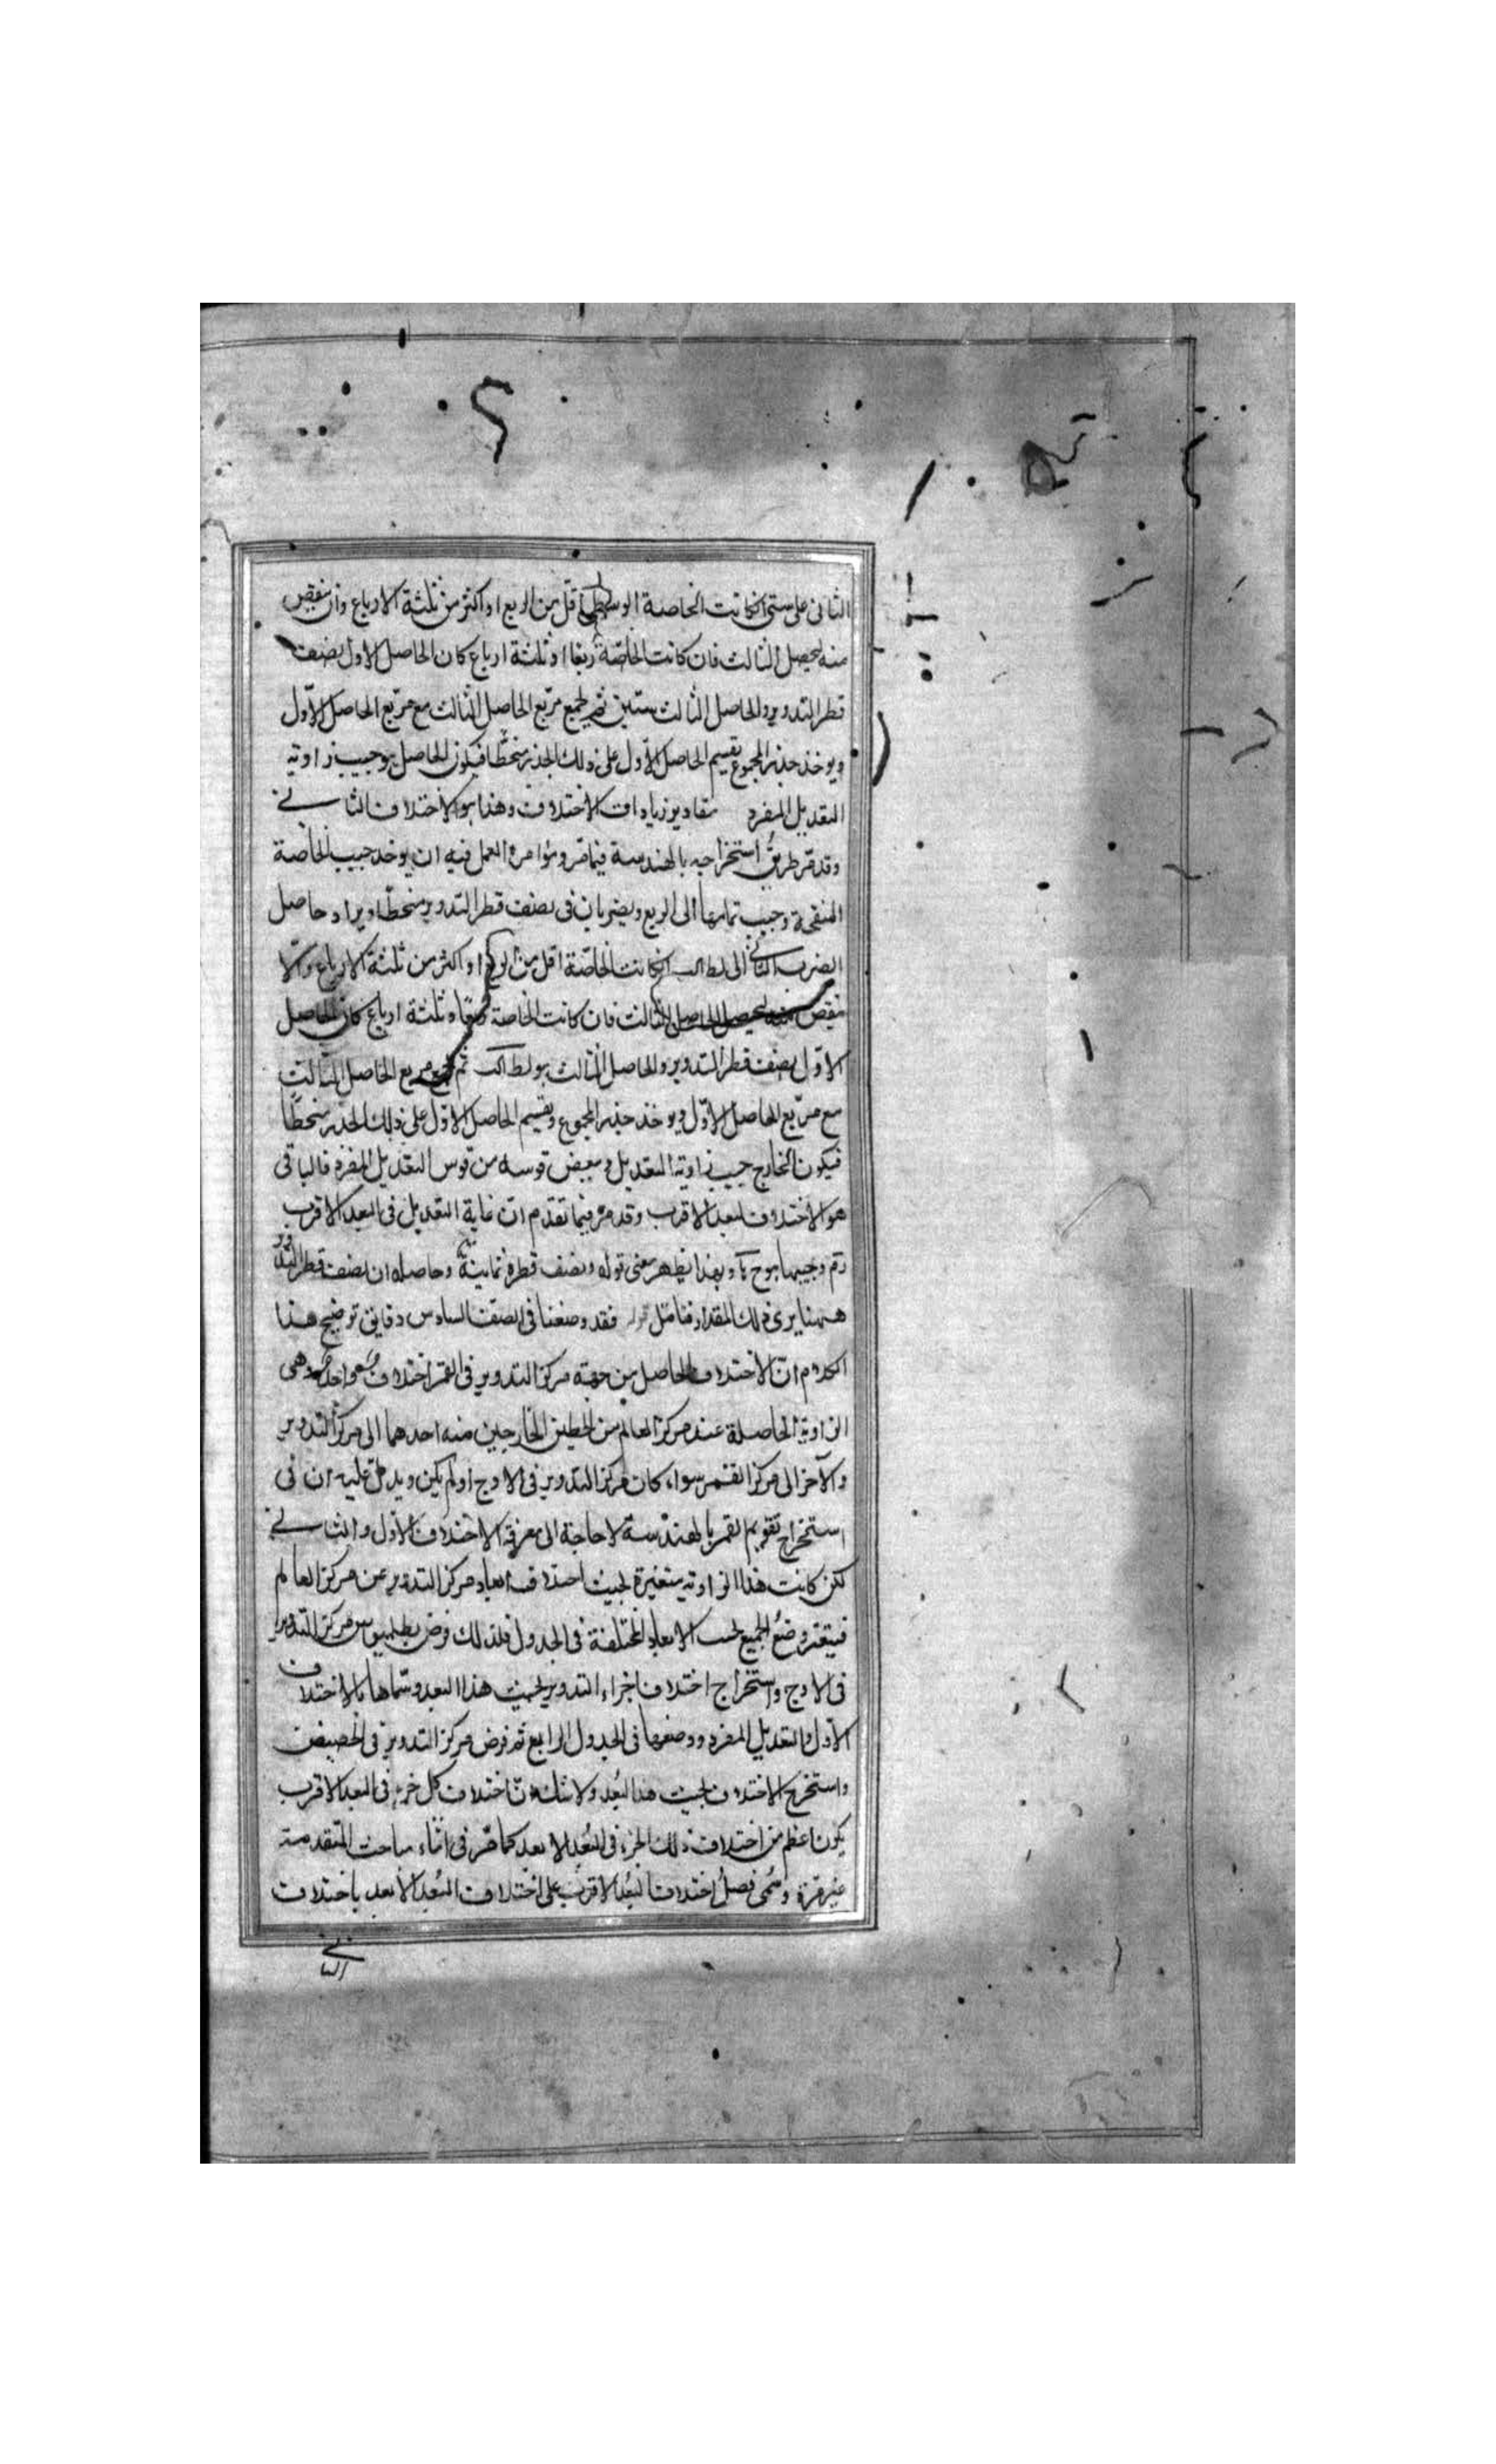 الثانى على ستين ان كانت الخاصة الوسطى اقل من الربع او اكثر من ثلثة الارباع وان ينقص
منه ليحصل الثالث فان كانت الخاصّة ربعا او ثلثة ارباع كان الحاصل الاول نصف
قطر التدوير والحاصل الثالث ستين ثم يجمع مربع الحاصل الثالث مع مربع الحاصل الاوّل
ويوخذ جذر المجموع يقسم الحاصل الاوّل على ذلك الجذر منحطّا فيكون الحاصل هو جيب زاوية
التعديل المفرد مقادير زيادات الاختلاف وهذا هو الاختلاف الثانے
وقد مر طريق استخراجه بالهندسة فيما مر ومؤامرة العمل فيه ان يوخذ جيب الخاصة
المنقحة وجيب تمامها الى الربع ويضربان فى نصف قطر التدوير منحطّا ويزاد حاصل
الضرب الثانى الى لط كانت الخاصّة اقل من الربع او اكثر من ثلثة الارباع والّا
ينقص منه ليحصل الحاصل الثالث فان كانت الخاصة ربعا او ثلثة ارباع كان الحاصل
الاوّل نصف قطر التدوير والحاصل الثالث هو لط ثم يجمع مربع الحاصل الثالث
مع مربّع الحاصل الاوّل ويوخذ جذر المجموع ويقسم الحاصل الاوّل على ذلك الجذر منحطّا
فيكون الخارج جيب زاوية التعديل وينقص قوسه من قوس التعديل المفرد فالباقى
هو الاختلاف لبعد الاقرب وقد مر فيما تقدم ان غاية التعديل فى البعد الاقرب
رقم وجيبها وبهذا يظهر معنى قوله ونصف قطره ثمانية وحاصله ان نصف قطر التدوير
ههنا يرى ذلك المقدار فتامل قوله فقد وضعنا فى الصف السادس دقايق توضيح هذا
الكلام انّ الاختلاف الحاصل من جهة مركز التدوير فى القمر اختلاف واحد وهى
الزاوية الحاصلة عند مركز العالم من الخطين الخارجين منه احدهما الى مركز التدوير
والآخر الى مركز القمر سواء كان مركز التدوير فى الاوج او لم يكن ويدل عليه ان فى
استخراج تقويم القمر بالهندسة لا حاجة الى معرفة الاختلاف الاوّل والثانے
لكن كانت هذا الزاوية متغيرة بحيث اختلاف ابعاد مركز التدوير عن مركز العالم
فيتعذر وضع الجميع بحسب الابعاد المختلفة فى الجدول فلذلك فرض بطلميوس مركز التدوير
فى الاوج واستخراج اختلاف اجزاء التدوير بحيث هذا البعد وسمّاها بالاختلاف
الاوّل والتعديل المفرد ووضعها فى الجدول الرابع ثم فرض مركز التدوير فى الحضيض
واستخرج الاختلاف بحيث هذا البُعد ولا شك انّ اختلاف كل جزء فى البعد الاقرب
يكون اعظم من اختلاف ذلك الجزء فى البُعد الابعد كما مر فى اثناء مباحث المتقدمة
غير مرّة وسُمى فضل اختلاف البُعد الاقرب على اختلاف البُعد الابعد باختلاف
الثانے